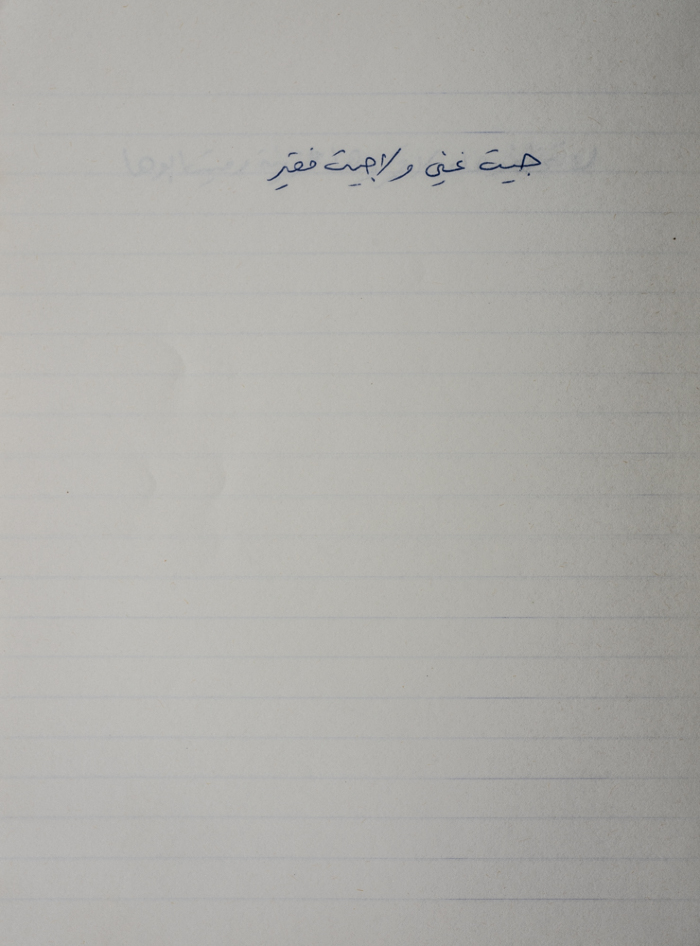 جيت غني ولا جيت فقير